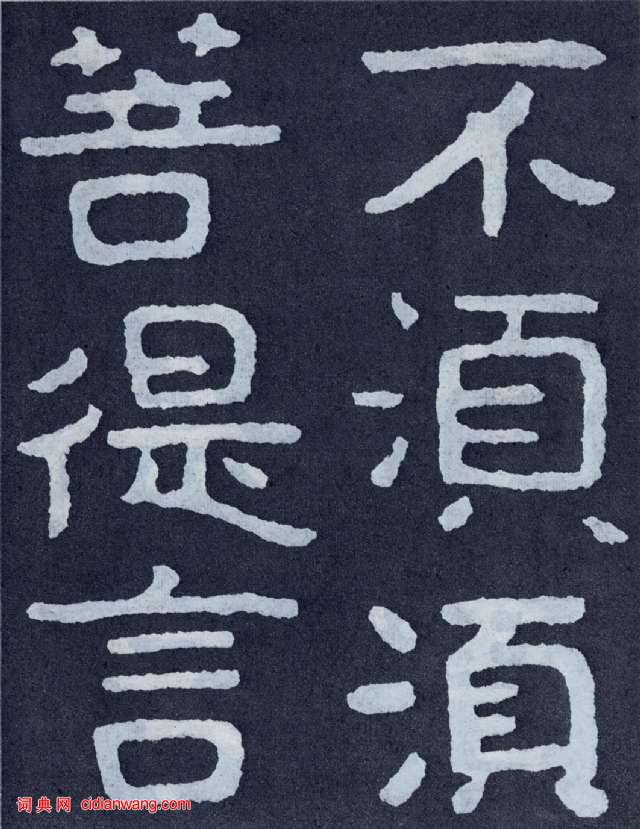 不湏湏
菩徥言
词典网 cidianwang.com